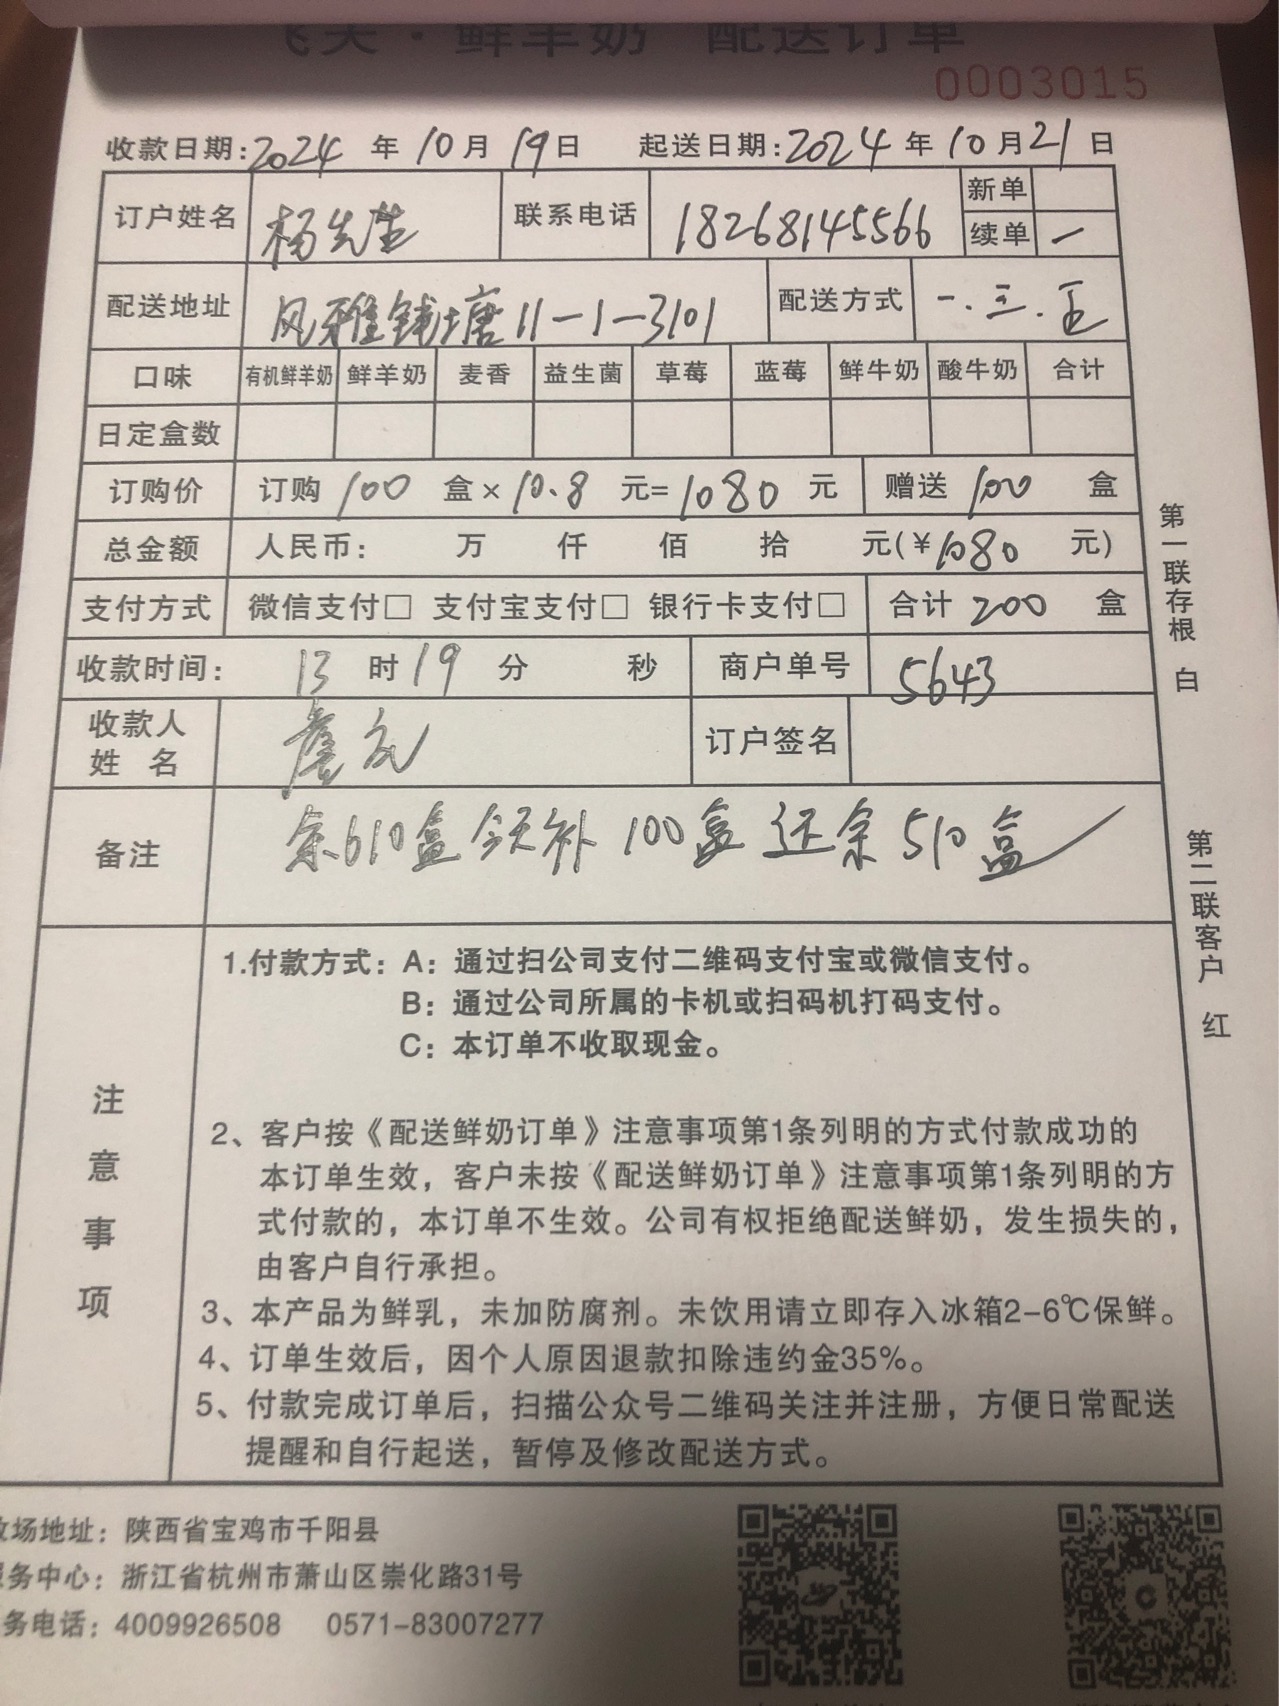 飞天·鲜羊奶 配送订单
0003015
收款日期:2024 年 10 月 19 日 起送日期:2024 年 10 月 21 日
订户姓名 杨先生 联系电话 18268145566 新单
续单 一
配送地址 风雅钱塘11-1-3101 配送方式 一.三.五
口味 有机鲜羊奶 鲜羊奶 麦香 益生菌 草莓 蓝莓 鲜牛奶 酸牛奶 合计
日定盒数
订购价 订购 100 盒×10.8 元=1080 元 赠送 100 盒
总金额 人民币: 万 仟 佰 拾 元(¥1080 元)
支付方式 微信支付□ 支付宝支付□ 银行卡支付□ 合计 200 盒
收款时间: 13 时 19 分 秒 商户单号 5643
收款人
姓 名
订户签名
备注 余610盒今天补100盒还余510盒
注意事项
1.付款方式:A:通过扫公司支付二维码支付宝或微信支付。
B:通过公司所属的卡机或扫码机打码支付。
C:本订单不收取现金。
2、客户按《配送鲜奶订单》注意事项第1条列明的方式付款成功的
本订单生效,客户未按《配送鲜奶订单》注意事项第1条列明的方
式付款的,本订单不生效。公司有权拒绝配送鲜奶,发生损失的,
由客户自行承担。
3、本产品为鲜乳,未加防腐剂。未饮用请立即存入冰箱2-6℃保鲜。
4、订单生效后,因个人原因退款扣除违约金35%。
5、付款完成订单后,扫描公众号二维码关注并注册,方便日常配送
提醒和自行起送,暂停及修改配送方式。
第一联存根 白
第二联客户 红
牧场地址:陕西省宝鸡市千阳县
服务中心:浙江省杭州市萧山区崇化路31号
务电话:4009926508 0571-83007277